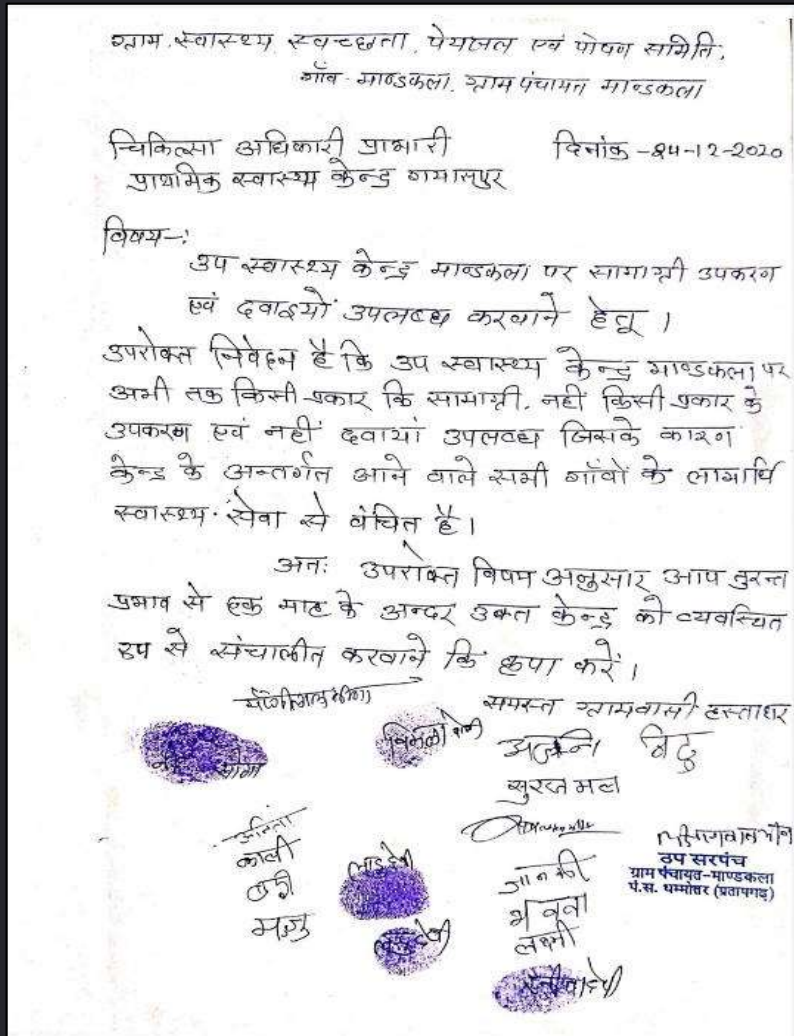 ग्राम, स्वास्थ्य, स्वच्छता, पेयजल एवं पोषण समिति,
गाँव-माण्डकला, ग्राम पंचायत माण्डकला
चिकित्सा अधिकारी प्रभारी दिनांक -24-12-2020
प्राथमिक स्वास्थ्य केन्द्र
विषय-:
उप स्वास्थ्य केन्द्र माण्डकला पर सामाग्री उपकरण
एवं दवाइयों उपलब्ध करवाने हेतू ।
उपरोक्त निवेदन है कि उप स्वास्थ्य केन्द्र माण्डकला पर
अभी तक किसी प्रकार कि सामाग्री, नहीं किसी प्रकार के
उपकरण एवं नहीं दवायां उपलब्ध जिसके कारण
केन्द्र के अन्तर्गत आने वाले सभी गाँवों के लाभार्थि
स्वास्थ्य सेवा से वंचित है।
अतः उपरोक्त विषय अनुसार आप तुरन्त
प्रभाव से एक माह के अन्दर उक्त केन्द्र को व्यवस्थित
रूप से संचालीत करवाने कि कृपा करें।
समस्त ग्रामवासी हस्ताक्षर
विमला
सुरजमल
अनिता
काली
लाडदेवी
जानकी
उप सरपंच
ग्राम पंचायत-माण्डकला
पं.स. धम्मोतर (प्रतापगढ़)
मजु
लक्ष्मी